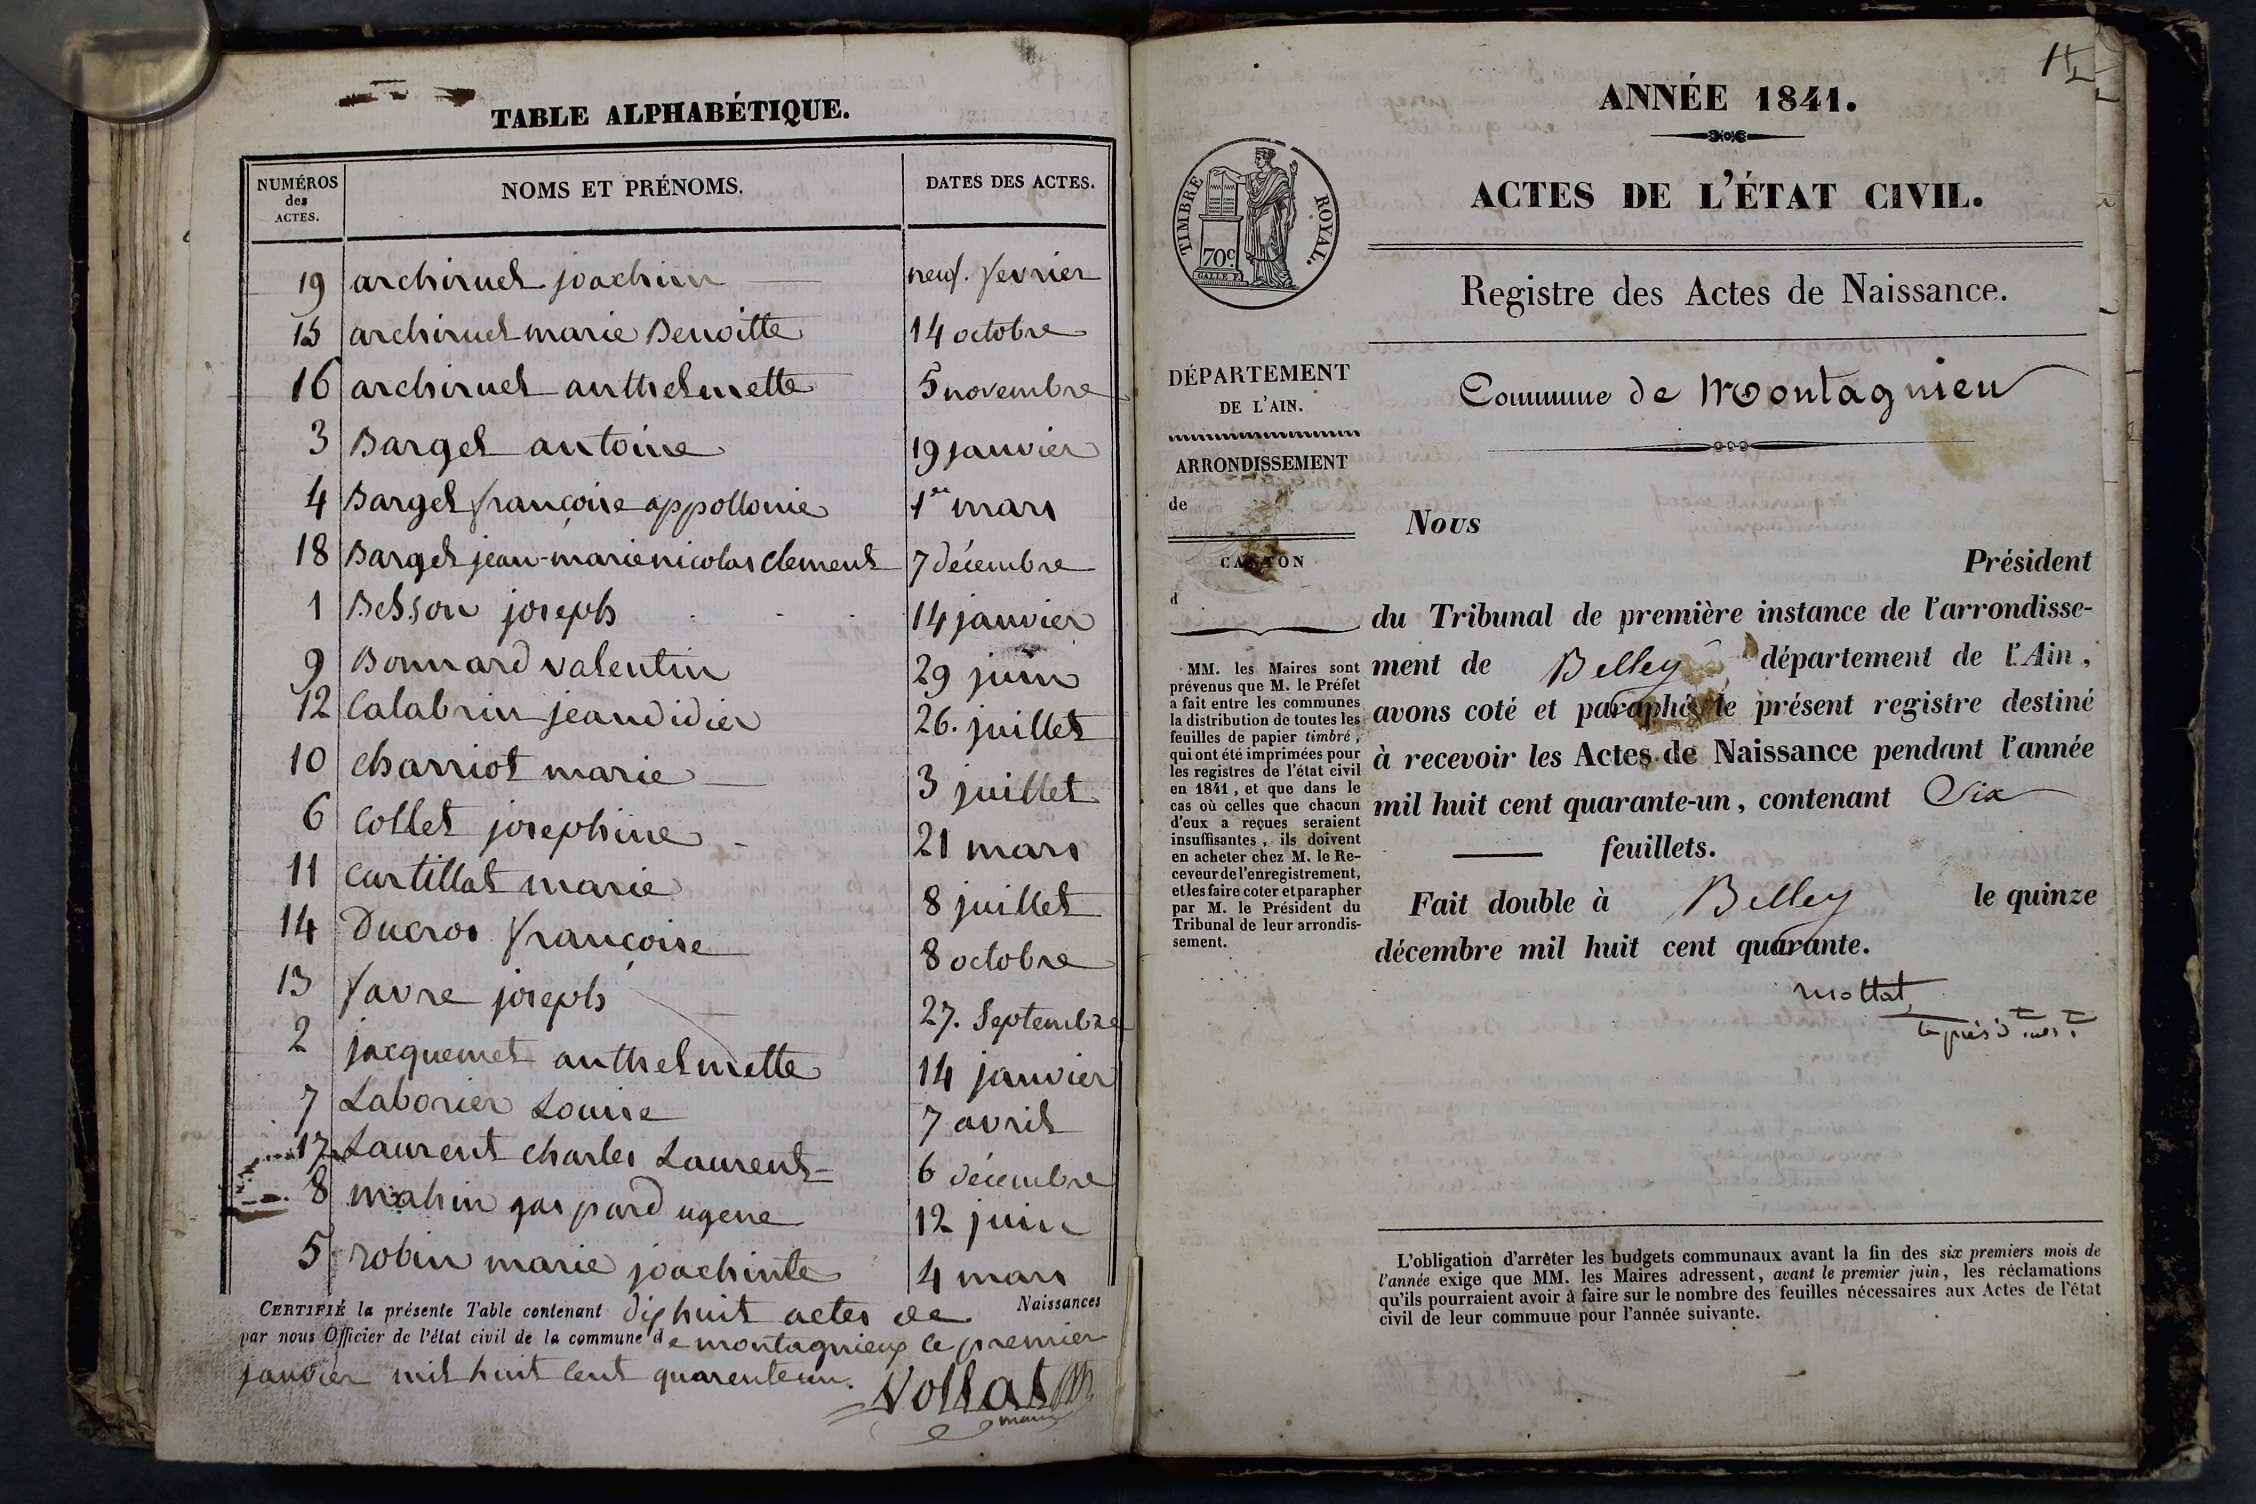 TABLE ALPHABÉTIQUE.
NUMÉROS des ACTES. NOMS ET PRÉNOMS. DATES DES ACTES.
19 archiruel joachim neuf. fevrier
15 archiruel marie Benoitte 14 octobre
16 archiruel anthelmette 5 novembre
3 Bargel antoine 19 janvier
4 Bargel françoise appollonie 1er mars
18 Bargel jean-marie nicolas clement 7 décembre
1 Besson joseph 14 janvier
9 Bonnard valentin 29 juin
12 Calabrin jean didier 26. juillet
10 charriot marie 3 juillet
6 Collet josephine 21 mars
11 curtillat marie 8 juillet
14 Ducros françoise 8 octobre
13 favre joseph 27. Septembre
2 jacquemet anthelmette 14 janvier
7 Laborier Louise 7 avril
17 Laurent charles Laurent 6 décembre
8 mahin gaspard ugene 12 juin
5 robin marie joachinte 4 mars
CERTIFIÉ la présente Table contenant dix huit actes de Naissances
par nous Officier de l'état civil de la commune de montagnieux le premier
janvier mil huit cent quarente un.
Vollat
maire
ANNÉE 1841.
ACTES DE L'ÉTAT CIVIL.
TIMBRE ROYAL.
70c
Registre des Actes de Naissance.
DÉPARTEMENT
DE L'AIN.
ARRONDISSEMENT
de
CANTON
d
MM. les Maires sont
prévenus que M. le Préfet
a fait entre les communes
la distribution de toutes les
feuilles de papier timbré,
qui ont été imprimées pour
les registres de l'état civil
en 1841, et que dans le
cas où celles que chacun
d'eux a reçues seraient
insuffisantes, ils doivent
en acheter chez M. le Re-
ceveur de l'enregistrement,
et les faire coter et parapher
par M. le Président du
Tribunal de leur arrondis-
sement.
Commune de Montagnieu
Nous
Président
du Tribunal de première instance de l'arrondisse-
ment de Belley département de l'Ain,
avons coté et paraphé le présent registre destiné
à recevoir les Actes de Naissance pendant l'année
mil huit cent quarante-un, contenant Six
feuillets.
Fait double à Belley le quinze
décembre mil huit cent quarante.
Mottat
L'obligation d'arrêter les budgets communaux avant la fin des six premiers mois de
l'année exige que MM. les Maires adressent, avant le premier juin, les réclamations
qu'ils pourraient avoir à faire sur le nombre des feuilles nécessaires aux Actes de l'état
civil de leur commune pour l'année suivante.